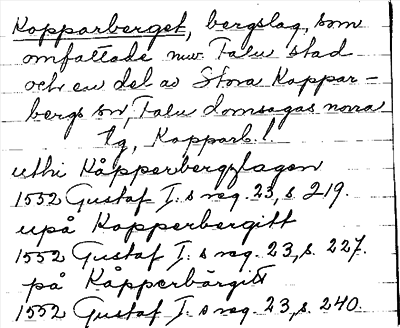 Kopparberget, bergslag, som
omfattade nuv. Falu stad
och en del av Stora Koppar-
bergs sn, Falu domsagas norra
tg, Kopparb. l.
uthi Kåpperbergzslagen
1552 Gustaf I:s reg. 23, s. 219.
upå Kopperbergitt
1552 Gustaf I:s reg. 23, s. 227.
på Kåpperbärgitt
1552 Gustaf I:s reg. 23, s. 240.